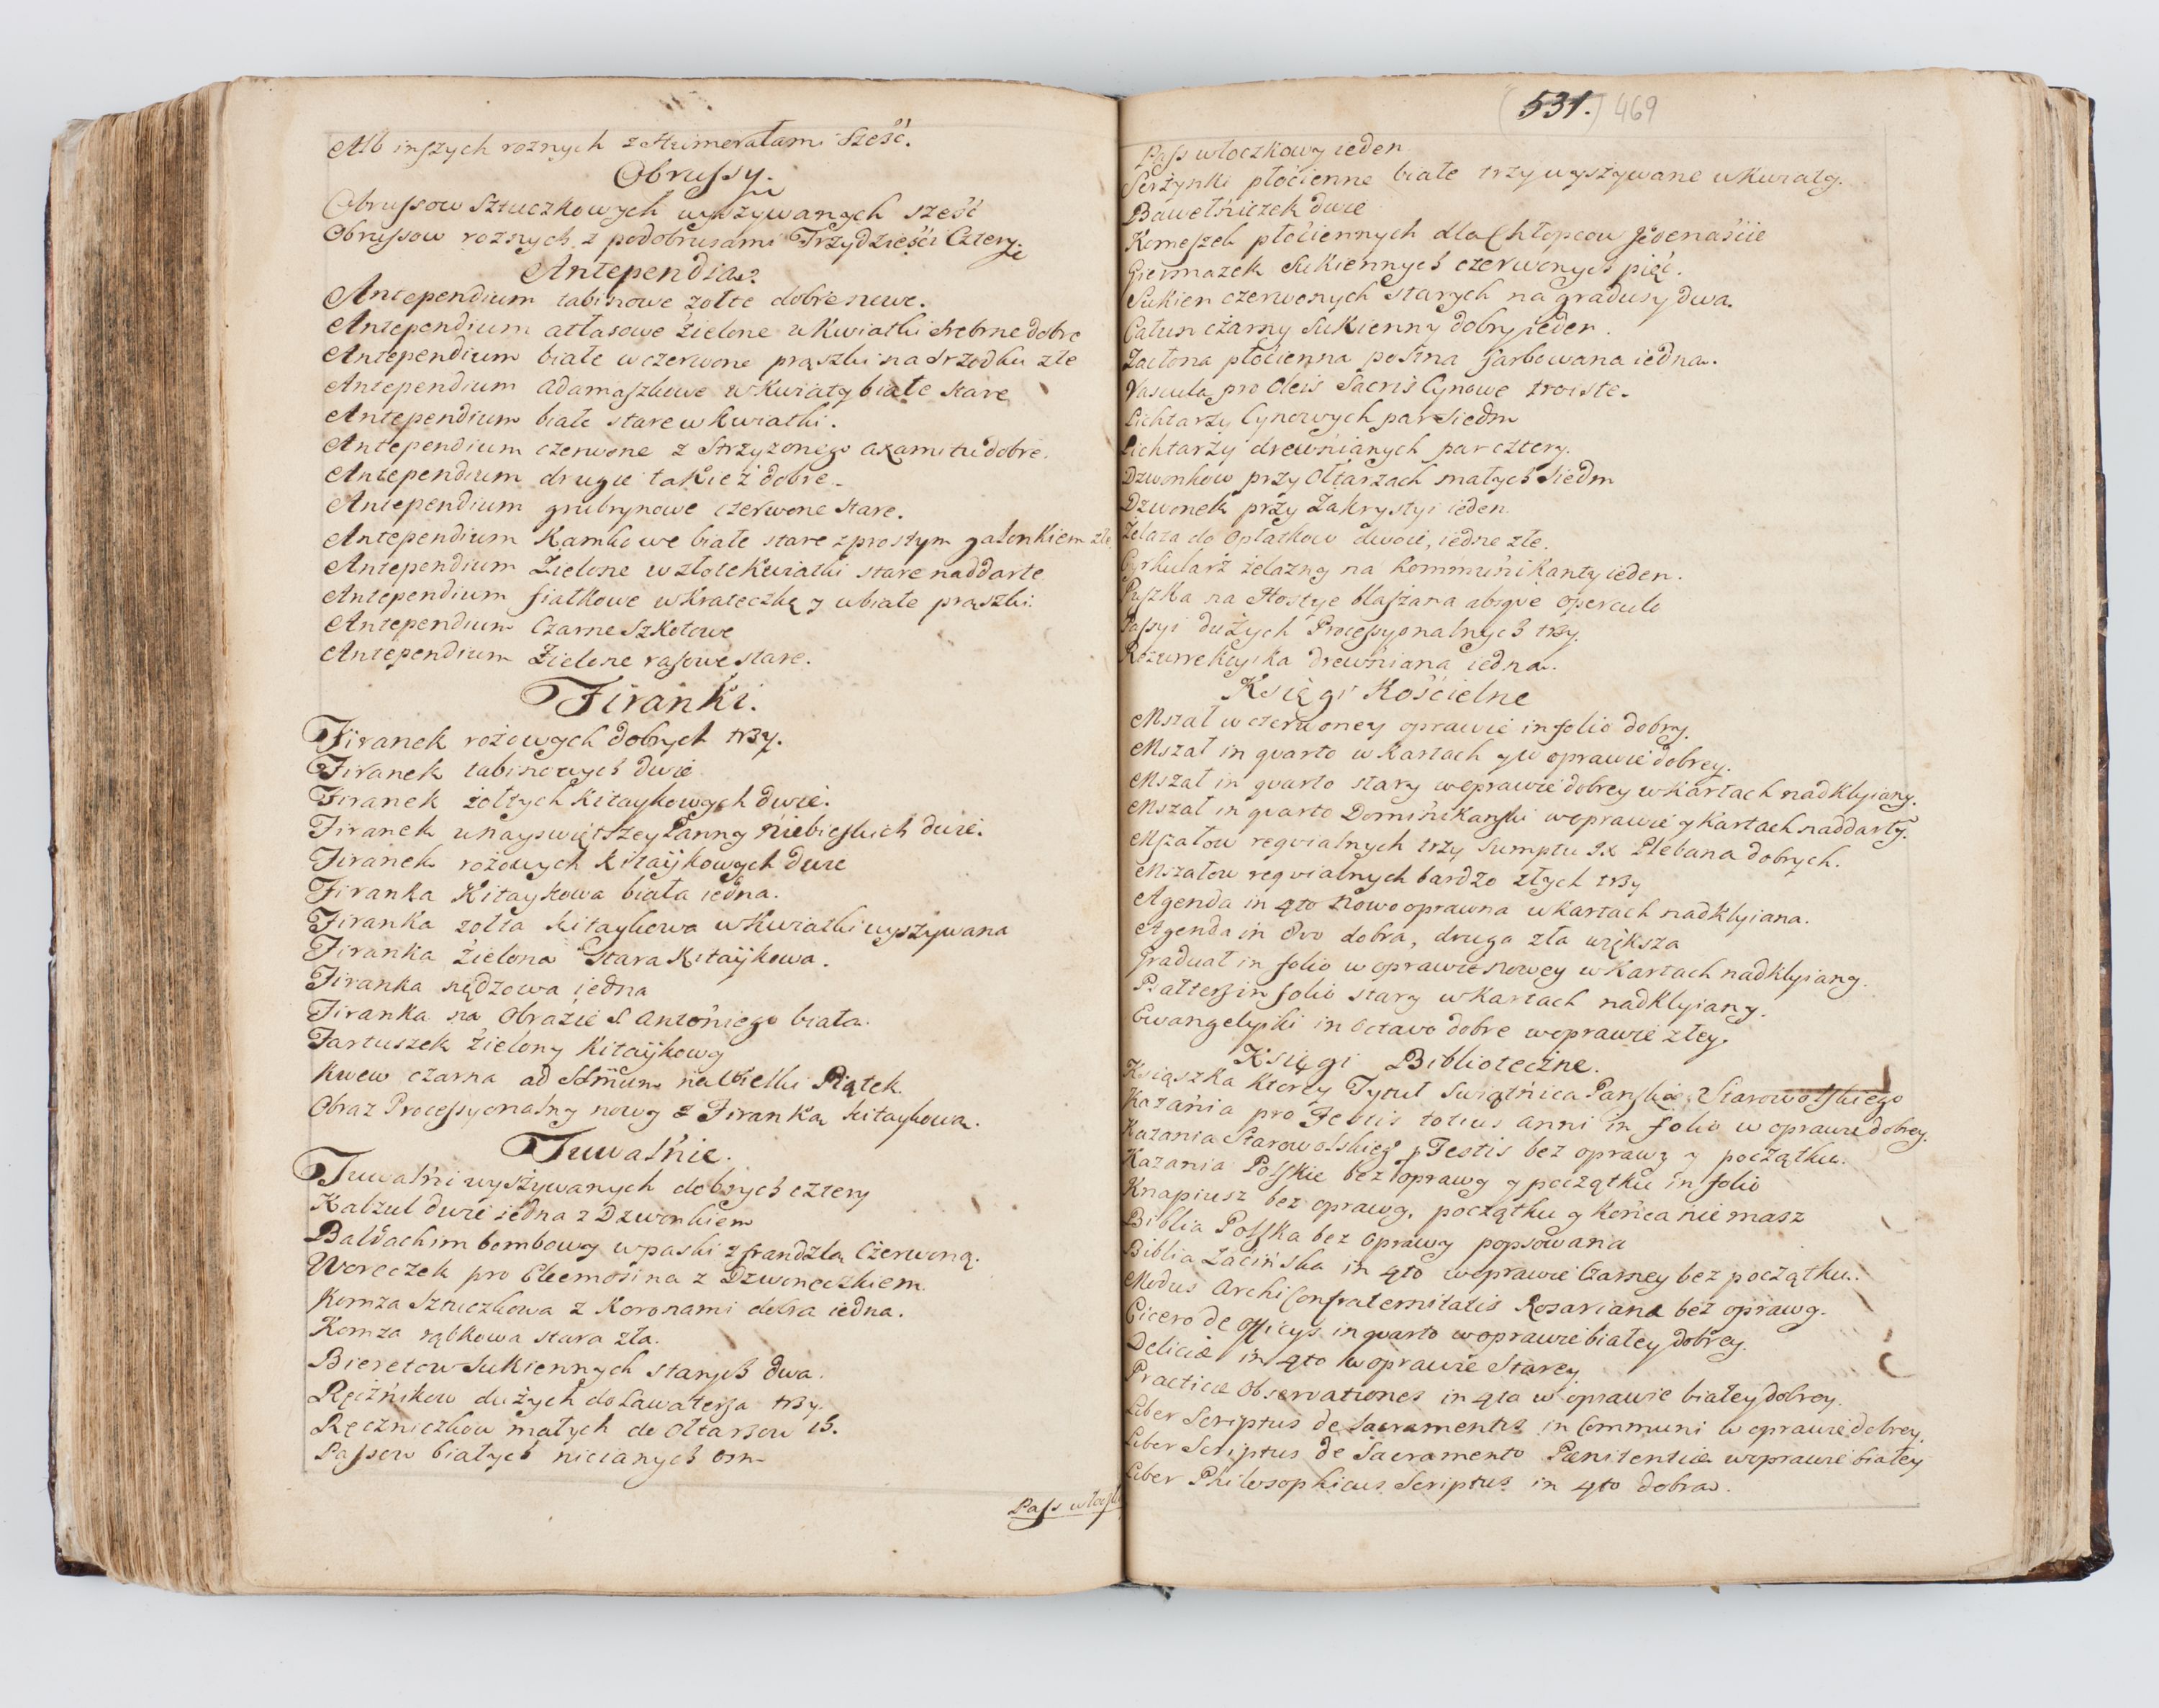 Alb inszych roznych z Humerałami Sześć.
Obrussy.
Obrussow Sztuczkowych wyszywanych sześć
Obrussow roznych z podobrusami Trzydzieści Cztery.
Antependia.
Antependium tabinowe żołte dobre nowe.
Antependium atłasowe Zielone w Kwiatki srebrne dobre
Antependium białe w czerwone prążki na srzodku złe
Antependium adamaszkowe w Kwiaty białe stare
Antependium białe stare w kwiatki.
Antependium czerwone z Strzyżonego axamitu dobre.
Antependium drugie takież dobre.
Antependium grubrynowe czerwone stare.
Antependium Kamkowe białe stare z prostym galonkiem złe
Antependium Zielone w złote Kwiatki stare naddarte
Antependium fiałkowe w Krateczkę y w białe prążki.
Antependium Czarne Szkotowe
Antependium Zielone rasowe stare.
Firanki.
Firanek rożowych dobrych trzy.
Firanek tabinowych dwie
Firanek żołtych Kitaykowych dwie.
Firanek u Nayswiętszey Panny Niebieskich dwie.
Firanek rożowych kitaykowych dwie
Firanka Kitaykowa biała iedna.
Firanka żołta kitaykowa w Kwiatki wyszywana
Firanka Zielona Stara Kitaykowa.
Firanka nędzowa iedna
Firanka na Obrazie S. Antoniego biała.
Fartuszek Zielony Kitaykowy
Kwew czarna ad Sdmum na Wielki Piątek.
Obraz Processyonalny nowy z Firanką kitaykową.
Tuwalnie.
Tuwalni wyszywanych dobrych cztery
Kalzul dwie iedna z Dzwonkiem
Baldachim bombowy w paski z frandzlą Czerwoną.
Woreczek pro Eleemosina z Dzwoneczkiem
Komza Sztuczkowa z Koronami dobra iedna.
Komza rąbkowa stara zła.
Bieretow Sukiennych starych dwa.
Ręcznikow dużych do Lawaterza trzy.
Ręczniczkow małych do Ołtarzow 15.
Passow białych nicianych osm
Pass włoczk
531. 469
Pass włoczkowy ieden
Serżynki płocienne białe trzy wyszywane w Kwiaty.
Bawełniczek dwie
Komeszek płociennych dla Chłopcow Jedenaście
Giermazek Sukiennych czerwonych pięć.
Sukien czerwonych starych na gradusy dwa.
Całun czarny Sukienny dobry ieden.
Zasłona płócienna postna farbowana iedna.
Vascula pro Oleis Sacris Cynowe troiste.
Lichtarzy Cynowych par siedm
Lichtarzy drewnianych par cztery.
Dzwonkow przy Ołtarzach małych siedm
Dzwonek przy Zakrystyi ieden
Żelaza do Opłatkow dwoie, iedne złe.
Cyrkularz żelazny na Kommunikanty ieden.
Puszka na Hostye blaszana absque operculo
Passyi dużych Processyonalnych trzy.
Rezurrekcyika drewniana iedna.
Księgi Kościelne
Mszał w czerwoney oprawie in folio dobry.
Mszał in quarto w Kartach y w oprawie dobrey.
Mszał in quarto stary w oprawie dobrey w Kartach nadklyiany.
Mszał in quarto Dominikanski w oprawie y Kartach naddarty.
Mszałow requialnych trzy Sumptu Jx Plebana dobrych.
Mszałow requialnych bardzo złych trzy
Agenda in 4to nowo oprawna w Kartach nadklyiana.
Agenda in 8vo dobra, druga zła większa
Graduał in folio w oprawie nowey w Kartach nadklyiany.
Psałterz in folio stary w Kartach nadklyiany.
Ewangelyiki in Octavo dobre w oprawie złey.
Księgi Biblioteczne.
Ksiąszka ktorey Tytuł Swiątnica Panska Starowolskiego
Kazania pro Festis totius anni in folio w oprawie dobrey.
Kazania Starowolskieg p Festis bez oprawy y początku.
Kazania Polskie bez oprawy y początku in folio
Knapiusz bez oprawy, początku y końca nie masz
Biblia Polska bez oprawy popsowana
Biblia Łacińska in 4to w oprawie Czarney bez początku.
Modus Archi Confraternitatis Rosariana bez oprawy.
Cicero de Officys in quarto w oprawie białey dobrey.
Deliciæ in 4to w oprawie Starey
Practicæ Observationes in 4to w oprawie białey dobrey.
Liber Scriptus de Sacramentis in Communi w oprawie dobrey.
Liber Scriptus de Sacramento Pænitentiæ w oprawie białey
Liber Philosophicus Scriptus in 4to dobra.